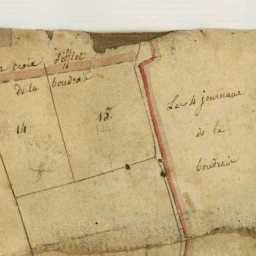 croix
de la
boudrais
14
15.
Les 4 journaux
de la
boudrais